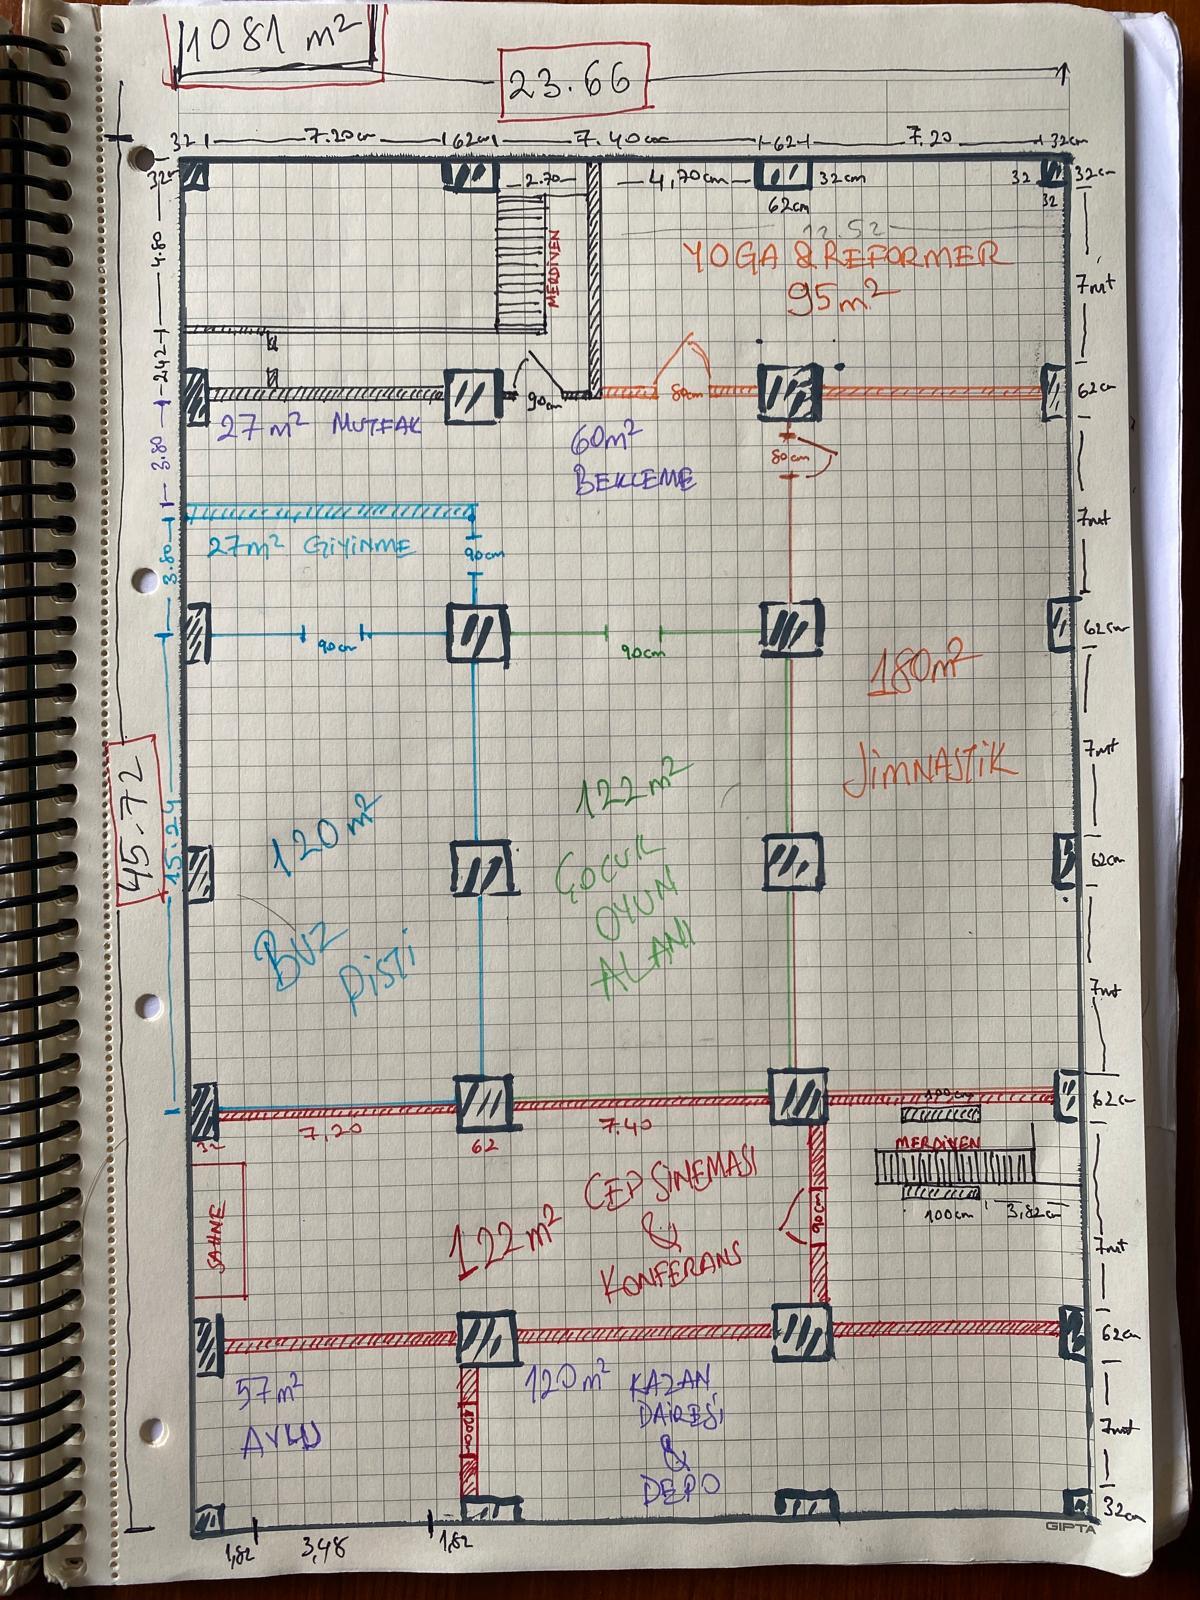 1081 m²
23.66
32 7.20cm 62cm 7.40cm 62 7,20 32cm
32 2.70 4,70cm 32cm 32 32cm
62cm 32
12.52
4.80
MERDİVEN
YOGA & REFORMER
95m²
7mt
242
90cm 80cm 62cm
27m² MUTFAK
60m²
BEKLEME
80cm
3.80
7mt
27m² GİYİNME
90cm
3.80
90cm 90cm 62cm
180m²
7mt
JİMNASTİK
122m²
45.72
15.24
120m²
ÇOCUK
OYUN
ALANI
62cm
BUZ
PİSTİ
7mt
100cm
62cm
32 7,20 62 7.40
MERDİVEN
CEP SİNEMASI
&
KONFERANS
122m²
SAHNE
90cm
100cm 3,82cm
7mt
62cm
57m²
AVLU
120m² KAZAN
DAİRESİ
&
DEPO
100cm
7mt
32cm
GIPTA
1,82 3,48 1,82